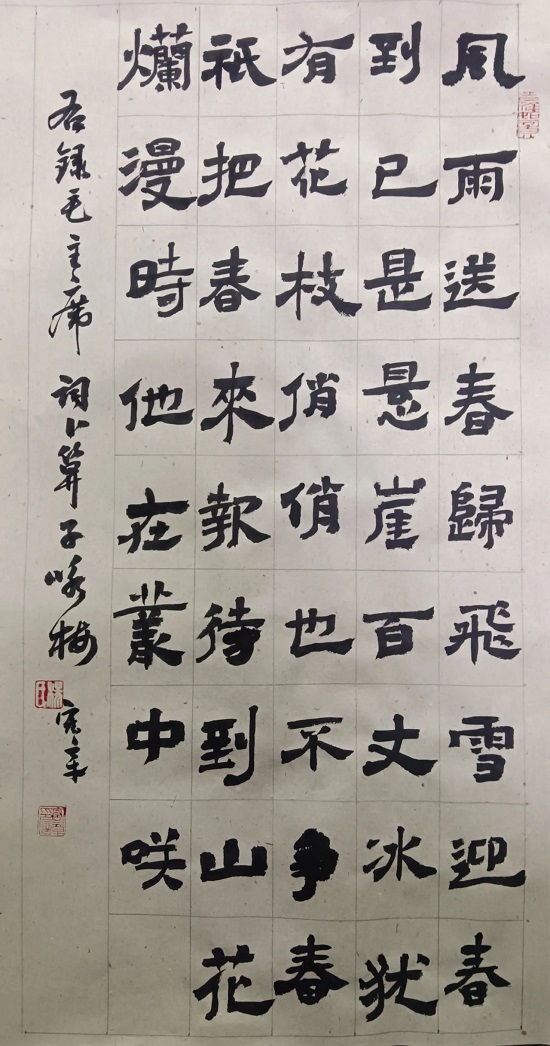 風雨送春歸飛雪迎春
到已是悬崖百丈冰犹
有花枝俏俏也不爭春
祇把春來報待到山花
爛漫時他在叢中咲
右録毛主席詞卜算子咏梅